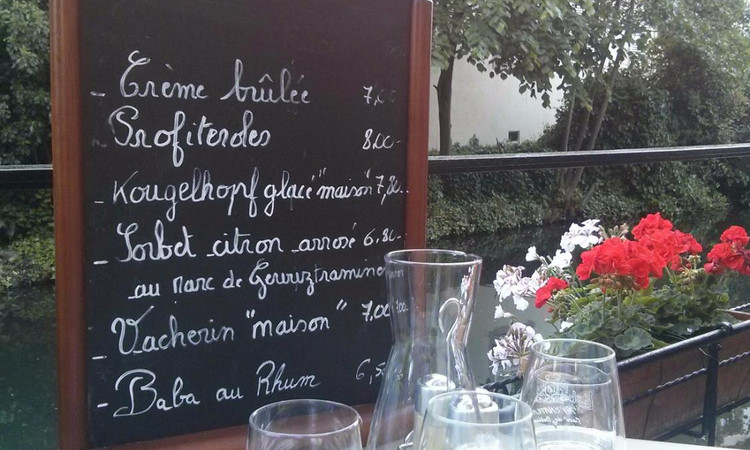 - Crème brûlée 7,00
- Profiteroles 8,00
- Kougelhopf glacé "maison" 7,80
- Sorbet citron arrosé 6,80
au Marc de Gewurztraminer
- Vacherin "maison" 7,00
- Baba au Rhum